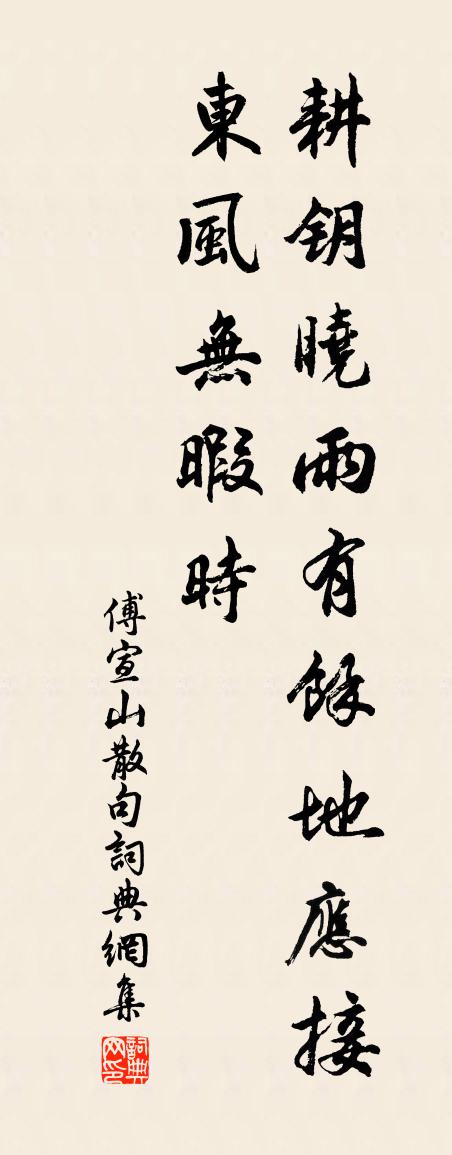 耕钥曉雨有餘地應接
東風無暇時
傅宣山散句詞典網集
詞典网印